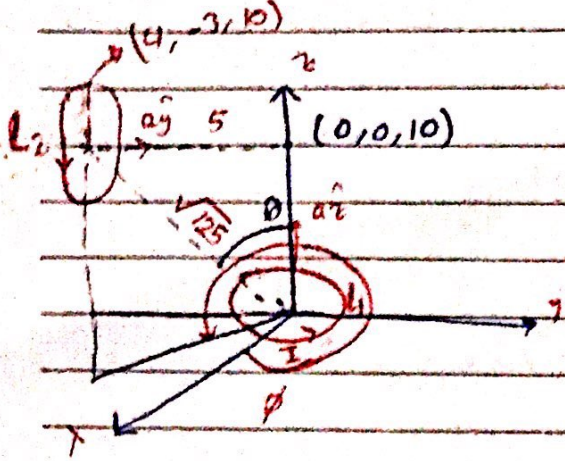 (4, -3, 10)
z
L2
aŷ 5
(0, 0, 10)
√125
θ
aẑ
L1
y
I
ϕ
x